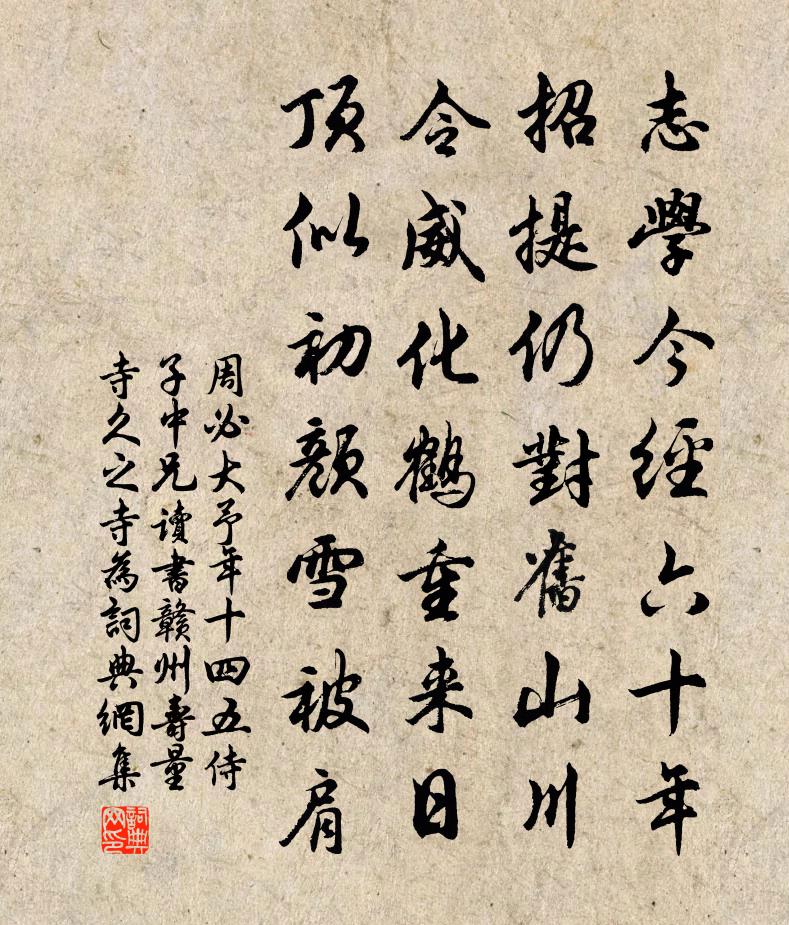 志學今經六十年
招提仍對舊山川
令威化鶴重来日
頂似初顏雪被肩
周必大予年十四五侍
子中兄讀書贛州壽量
寺久之寺為詞典網集
詞典
网印